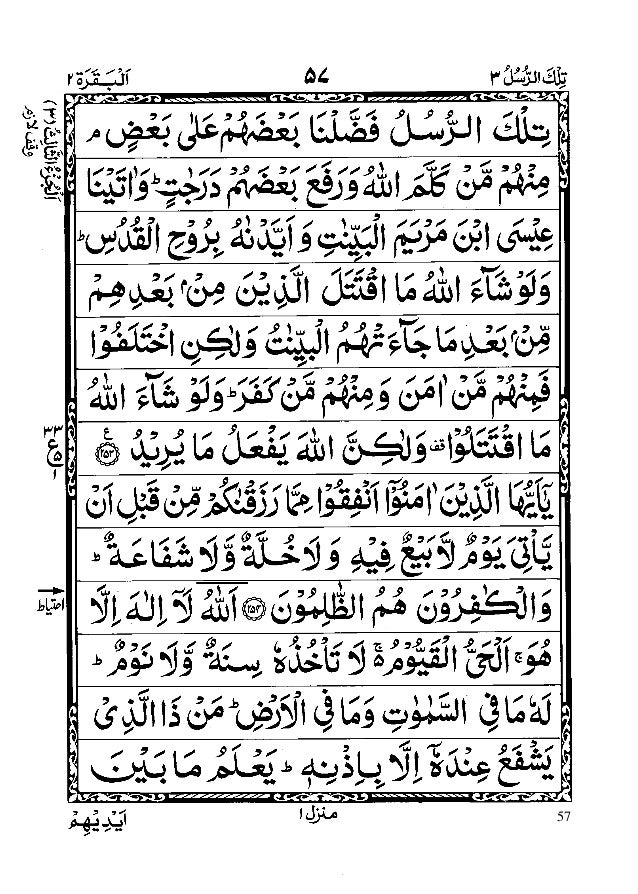 تِلْكَ الرُّسُلُ ٣
٥٧
اَلْبَقَرَة ٢
تِلْكَ الرُّسُلُ فَضَّلْنَا بَعْضَهُمْ عَلٰى بَعْضٍ ۘ
مِنْهُمْ مَّنْ كَلَّمَ اللّٰهُ وَرَفَعَ بَعْضَهُمْ دَرَجٰتٍ ؕ وَاٰتَيْنَا
عِيْسَى ابْنَ مَرْيَمَ الْبَيِّنٰتِ وَ اَيَّدْنٰهُ بِرُوْحِ الْقُدُسِ ؕ
وَلَوْ شَآءَ اللّٰهُ مَا اقْتَتَلَ الَّذِيْنَ مِنْۢ بَعْدِهِمْ
مِّنْۢ بَعْدِ مَا جَآءَتْهُمُ الْبَيِّنٰتُ وَلٰكِنِ اخْتَلَفُوْا
فَمِنْهُمْ مَّنْ اٰمَنَ وَمِنْهُمْ مَّنْ كَفَرَ ؕ وَلَوْ شَآءَ اللّٰهُ
مَا اقْتَتَلُوْا قف وَلٰكِنَّ اللّٰهَ يَفْعَلُ مَا يُرِيْدُ ﴿٢٥٣﴾ ع
يٰۤاَيُّهَا الَّذِيْنَ اٰمَنُوْۤا اَنْفِقُوْا مِمَّا رَزَقْنٰكُمْ مِّنْ قَبْلِ اَنْ
يَّاْتِيَ يَوْمٌ لَّا بَيْعٌ فِيْهِ وَلَا خُلَّةٌ وَّلَا شَفَاعَةٌ ؕ
وَالْكٰفِرُوْنَ هُمُ الظّٰلِمُوْنَ ﴿٢٥٤﴾ اَللّٰهُ لَاۤ اِلٰهَ اِلَّا
هُوَ ۚ اَلْحَيُّ الْقَيُّوْمُ ۚ لَا تَاْخُذُهٗ سِنَةٌ وَّلَا نَوْمٌ ؕ
لَهٗ مَا فِي السَّمٰوٰتِ وَمَا فِي الْاَرْضِ ؕ مَنْ ذَا الَّذِيْ
يَشْفَعُ عِنْدَهٗۤ اِلَّا بِاِذْنِهٖ ؕ يَعْلَمُ مَا بَيْنَ
اَلْجُزْءُ الثَّالِثُ (٣)
وقف لازم
٣٣
ع
٥
١
احتیاط
57
منزل ١
اَيْدِيْهِمْ